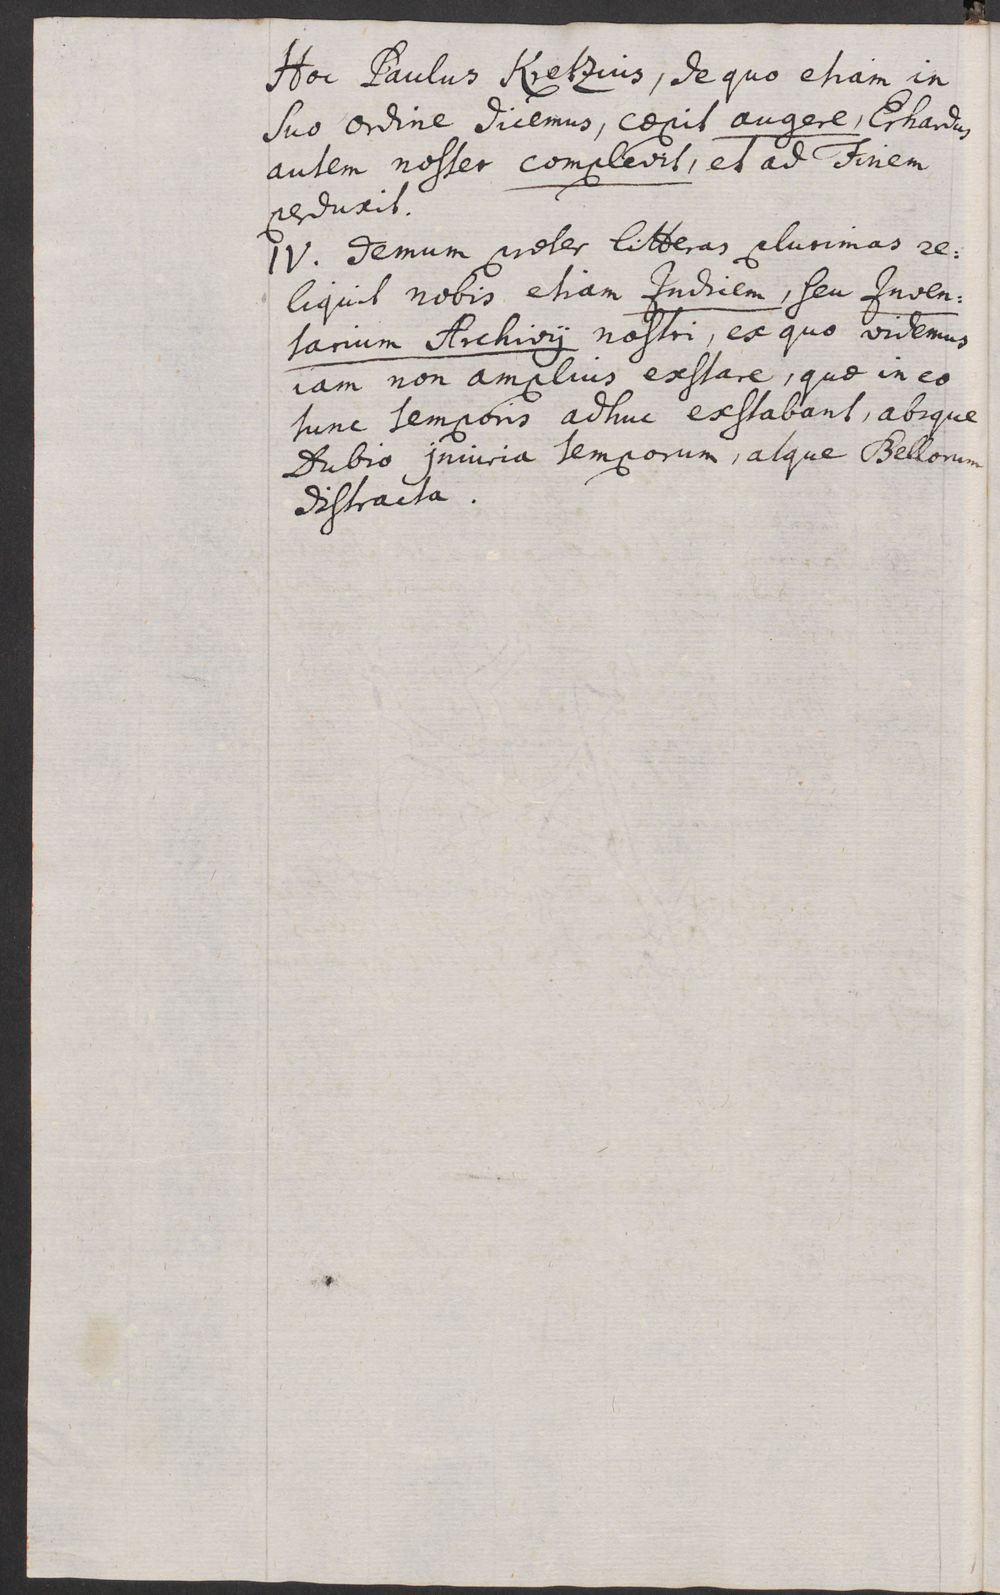 Hoc Paulus Kretzius, de quo etiam in
suo ordine dicemus, cœpit augere, Erhardus
autem noster complevit, et ad Finem
perduxit.
IV. Demum præter litteras plurimas re:
liquit nobis etiam Indicem, seu Inven:
tarium Archivij nostri, ex quo videmus
iam non amplius exstare, quæ in eo
tunc temporis adhuc exstabant, absque
Dubio jniuria temporum, atque Bellorum
distracta.